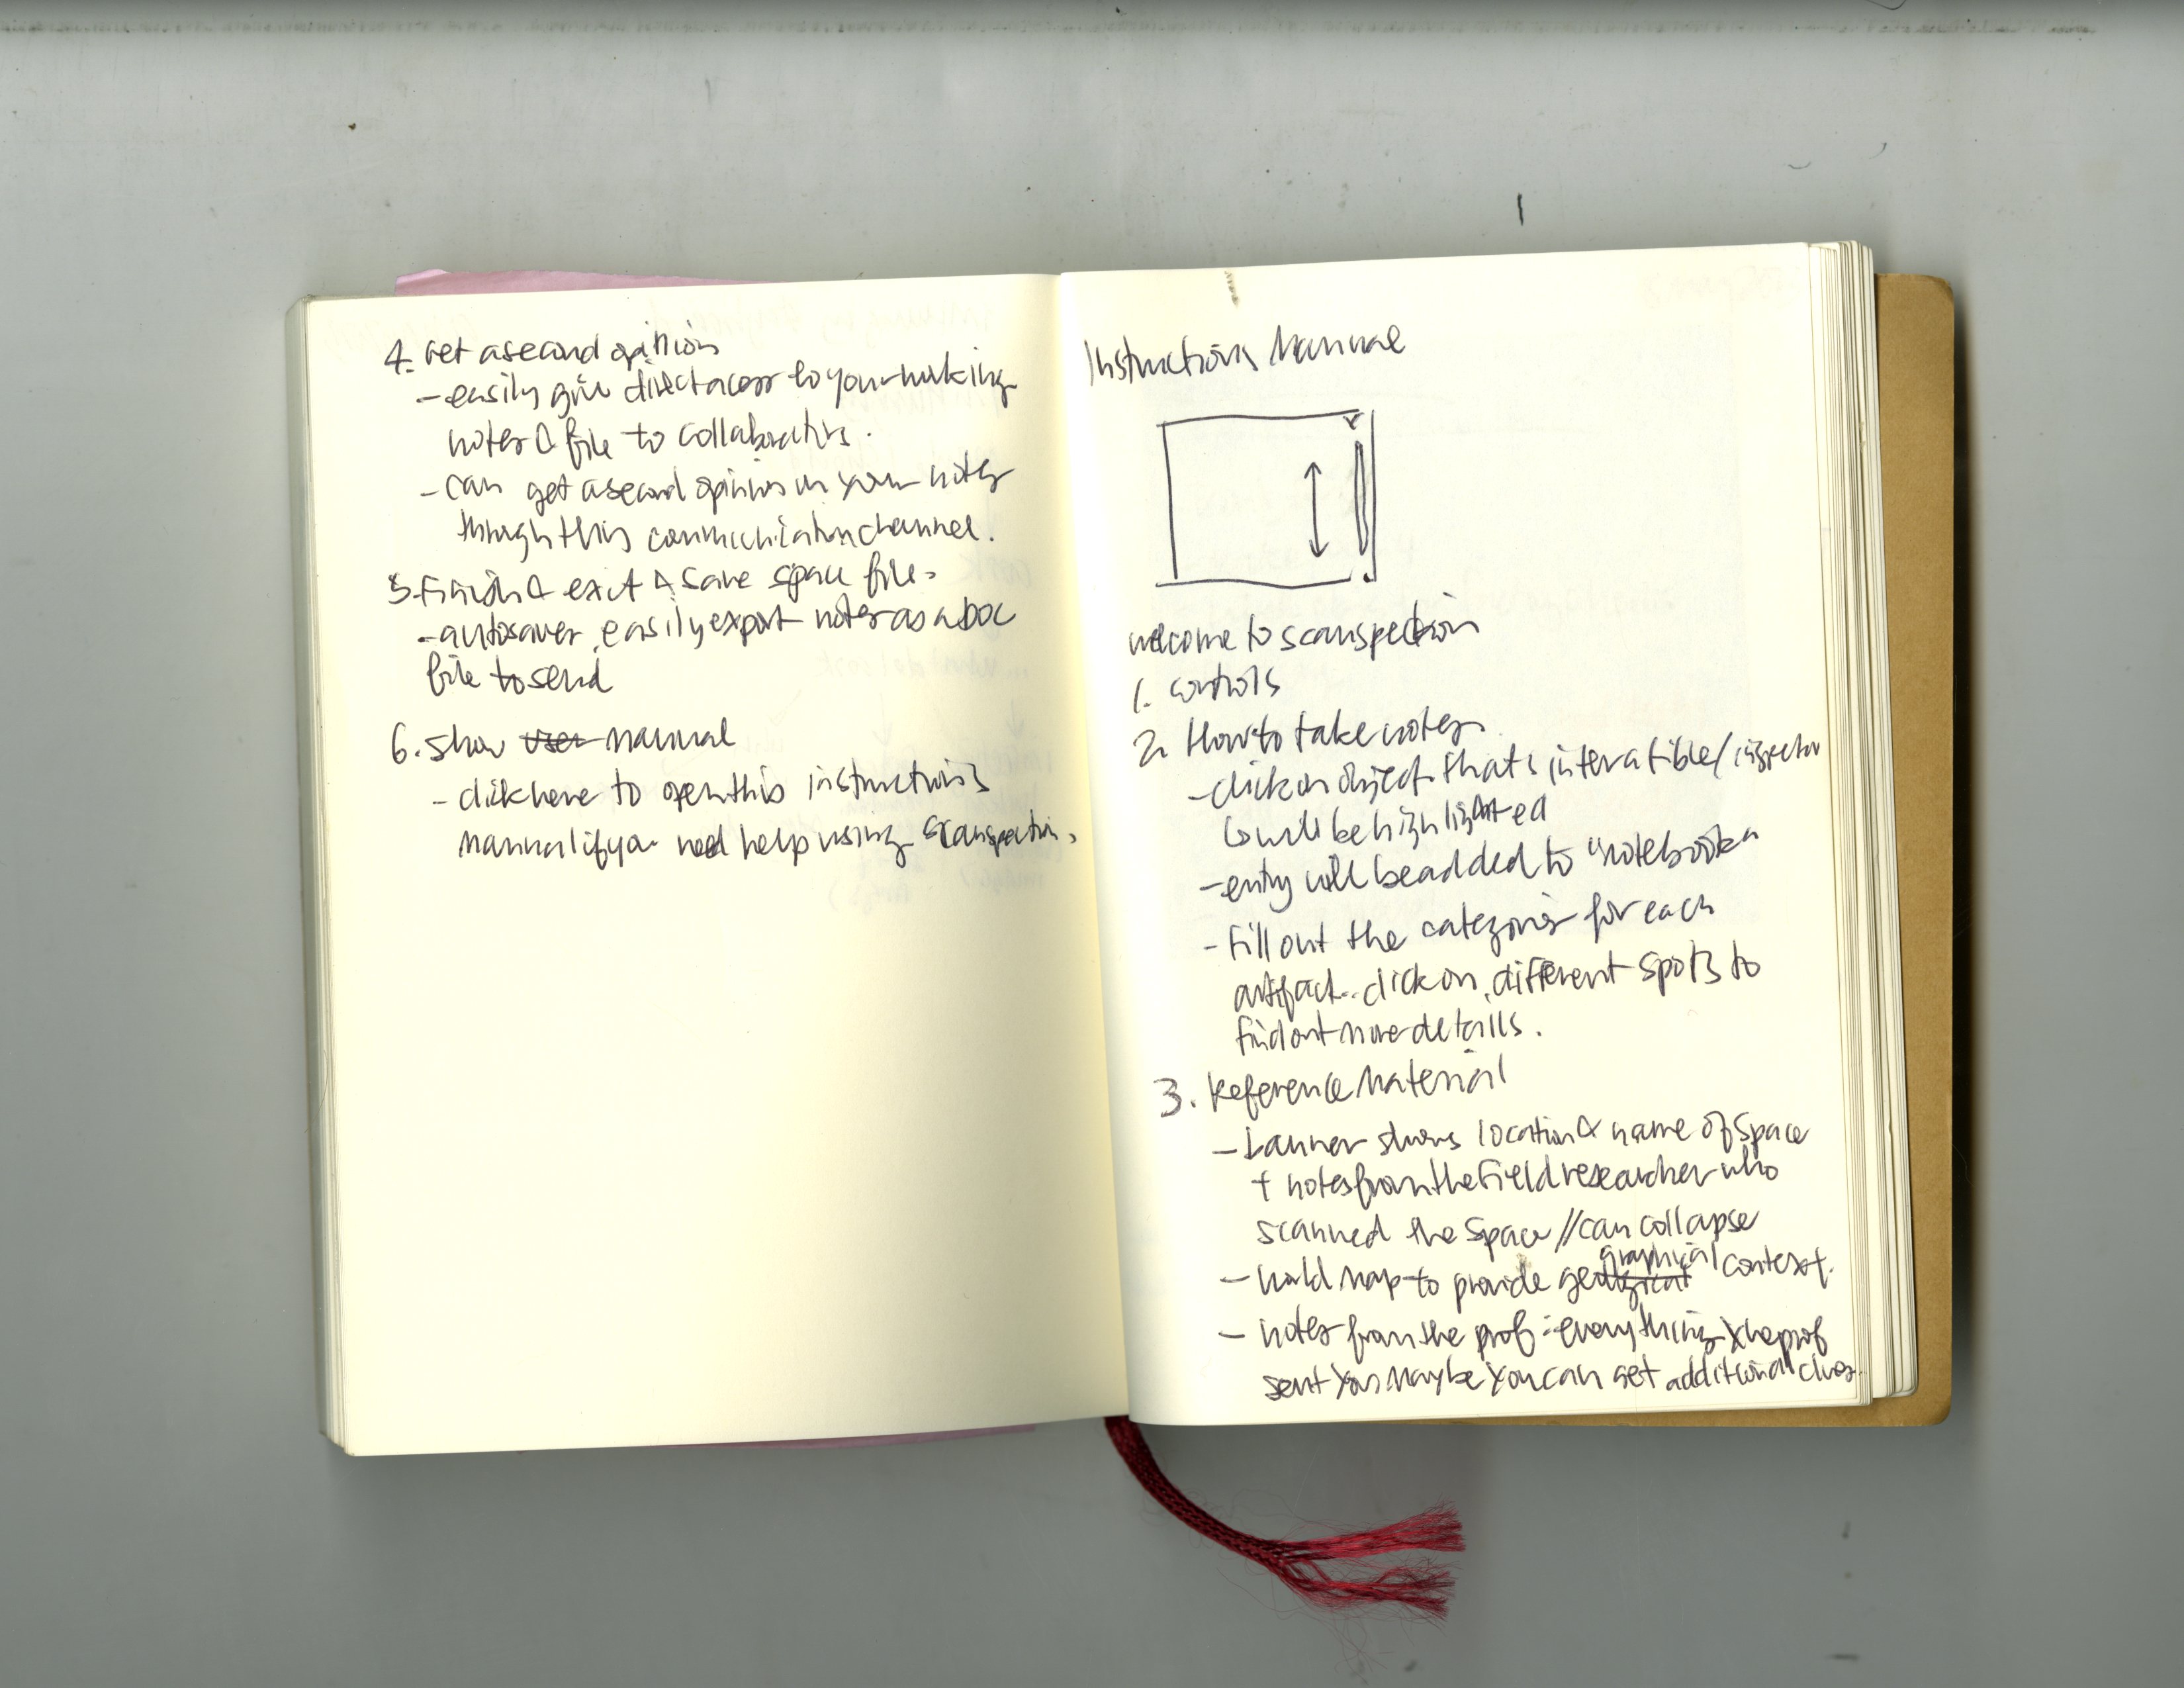 4. Get a second opinion
- easily give direct access to your working
notes & file to collaborators.
- can get a second opinion on your notes
through this communication channel.
5. Finish & exit & save space file.
- autosaves, easily export notes as a DOC
file to send
6. show user manual
- click here to open this instructions
manual if you need help using scanspection.
Instructions Manual
welcome to scanspection
1. controls
2. How to take notes.
- click on object that's interatible/
↳ will be highlighted
- entry will be added to "notebook"
- Fill out the categories for each
artifact.. click on different spots to
find out more details.
3. Reference Material
- Banner shows location & name of space
+ notes from the field researcher who
scanned the space // can collapse
graphical
- world map to provide geological context.
- notes from the prof: everything the prof
sent you maybe you can get additional clues.